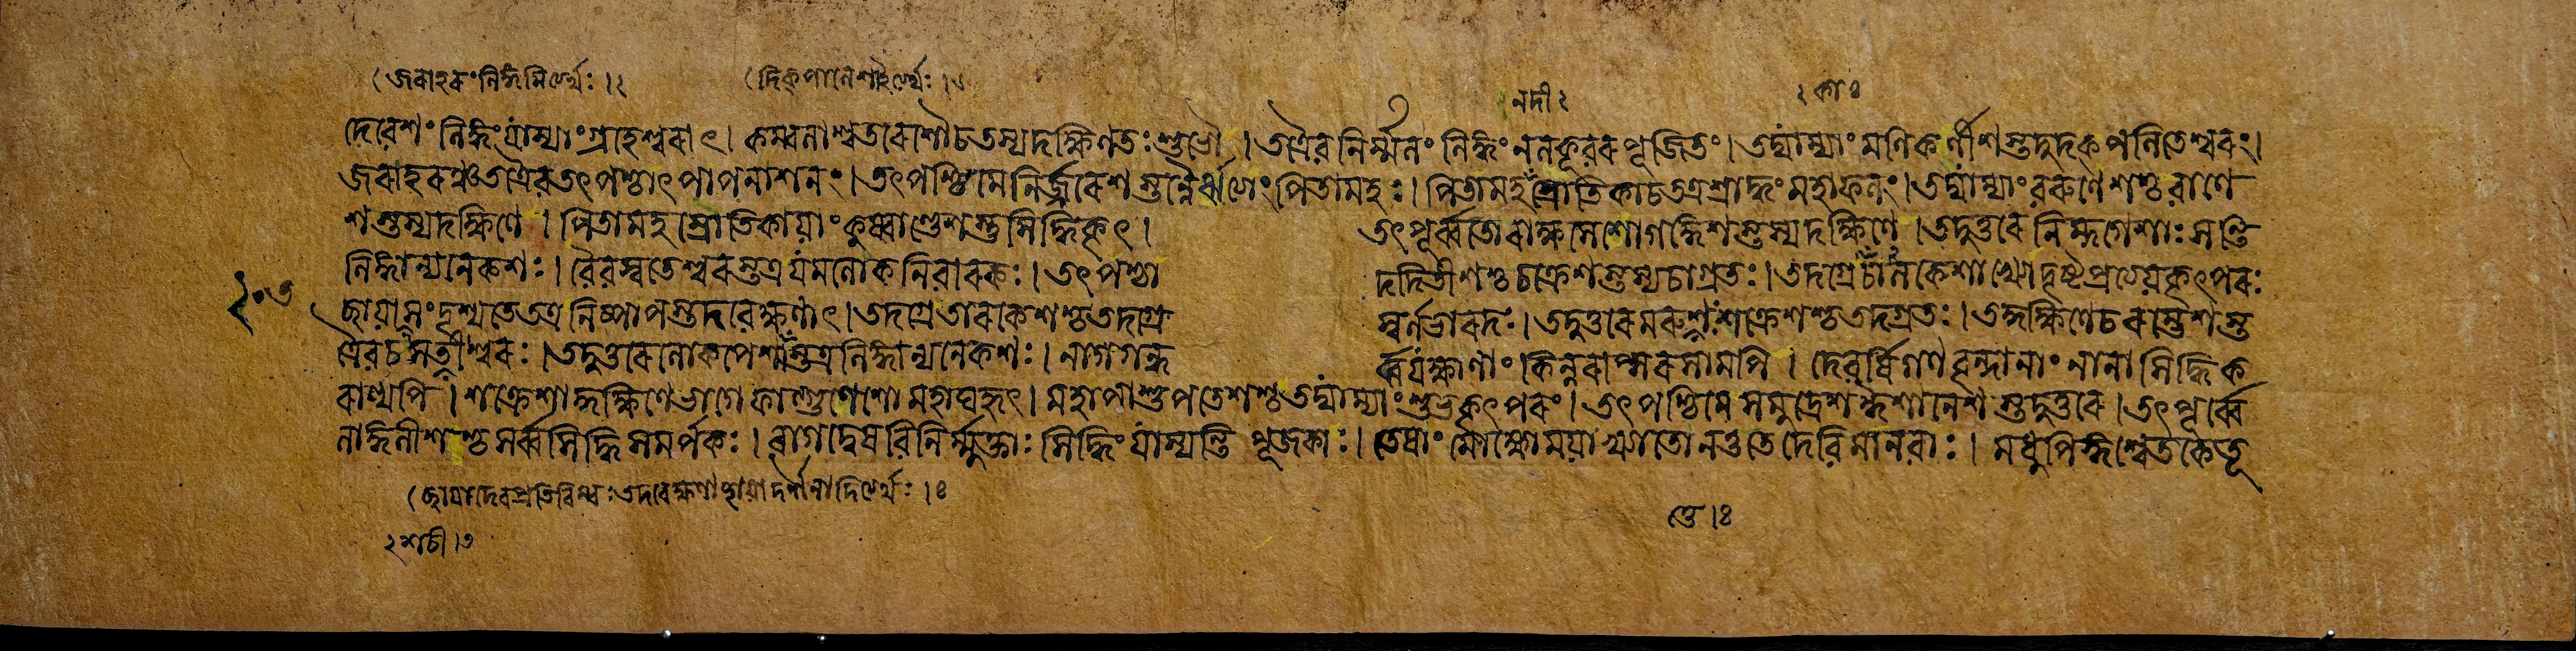 (জরাহরং লিঙ্গমিত্যর্থঃ।২ (দিক্পালেশা ইত্যর্থঃ।৬ নদী২ ২কা৪
দেবেশং লিঙ্গং যাম্যাং গ্রাহেশ্বরাৎ। কম্বলাশ্বতরেশৌ চ তস্য দক্ষিণতঃ শুভৌ। তত্রৈব নির্ম্মলং লিঙ্গং নলকূবরপূজিতং। তদ্যাম্যাং মণিকর্ণীশস্তদুদক্পলিতেশ্বরঃ।
জরাহরঞ্চ তত্রৈব তৎপশ্চাৎ পাপনাশনং। তৎপশ্চিমে নির্জ্জরেশস্তন্নৈরৃত্যে পিতামহঃ। পিতামহস্রোতিকা চ তত্র শ্রাদ্ধং মহাফলং। তদ্যাম্যাং বরুণেশশ্চ বাণে
শস্তস্য দক্ষিণে। পিতামহস্রোতিকায়াং কুষ্মাণ্ডেশস্তু সিদ্ধিকৃৎ। তৎপূর্ব্বতো রাক্ষসেশো গঙ্গেশস্তস্য দক্ষিণে। তদুত্তরে নিম্নগেশাঃ সন্তি
লিঙ্গান্যনেকশঃ। বৈবস্বতেশ্বরস্তত্র যমলোকনিবারকঃ। তৎপশ্চা দদিতীশশ্চ চক্রেশস্তস্য চাগ্রতঃ। তদগ্রে কালকেশাখ্যো দৃষ্টপ্রত্যয়কৃৎপরঃ
ছায়া সংদৃশ্যতে তত্র নিষ্পাপস্তদবেক্ষণাৎ। তদগ্রে তারকেশশ্চ তদগ্রে স্বর্ণভারদঃ। তদুত্তরে মরুত্তেশঃ শক্রেশশ্চ তদগ্রতঃ। তদ্দক্ষিণে চ রম্ভেশস্ত
ত্রৈব চ শচীশ্বরঃ। তদুত্তরে লোকপেশাস্তত্র লিঙ্গান্যনেকশঃ। নাগগন্ধ র্ব্বযক্ষাণাং কিন্নরাপ্সরসামপি। দেবর্ষিগণবৃন্দানাং নানাসিদ্ধিক
রাণ্যপি। শক্রেশাদ্দক্ষিণে ভাগে ফাল্গুনেশো মহাঘহৃৎ। মহাপাশুপতেশশ্চ তদ্যাম্যাং শুভকৃৎপরঃ। তৎপশ্চিমে সমুদ্রেশ ঈশানেশস্তদুত্তরে। তৎপূর্ব্বে
লাঙ্গলীশশ্চ সর্ব্বসিদ্ধিসমর্পকঃ। রাগদ্বেষবিনির্ম্মুক্তাঃ সিদ্ধিং যাস্যন্তি পূজকাঃ। তেষাং মোক্ষো ময়াখ্যাতো ন তু তে দেবি মানবাঃ। মধুপিঙ্গশ্বেতকেতূ
(ছায়াদেবপ্রতিবিম্বঃ তদবেক্ষণাচ্ছায়াদর্শনাদিত্যর্থঃ।৪ ত্তে।৪
২শচী।৬